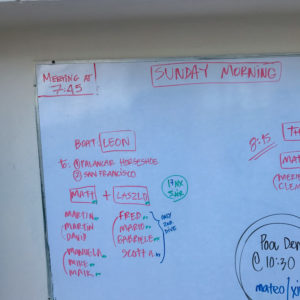 MEETING AT
7:45
SUNDAY MORNING
BOAT LEON
TO: ① PALANCAR HORSESHOE
② SAN FRANCISCO
MATT + LASZLO
MARTIN
MARTIN
DAVID
MANUELA
MIKE
MAIK
FRED
MARIO
GABRIELE
SCOTT
ONLY
2ND
DIVE
8:15
MAT
CLEM
Pool Dem
@ 10:30
mateo/